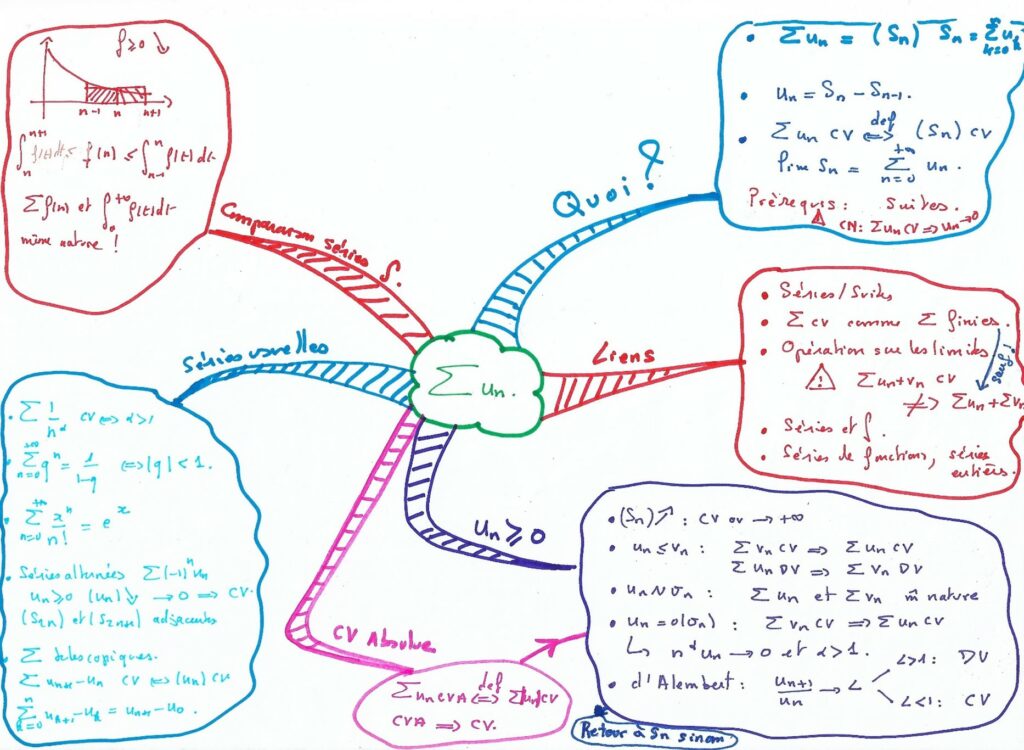 Σ un.
Quoi ?
• Σ un = (Sn) Sn = Σ_{k=0}^{n} uk
• un = Sn − Sn-1.
• Σ un CV ⇔ def (Sn) CV
lim Sn = Σ_{n=0}^{+∞} un.
Prérequis : Suites.
⚠ CN : Σ un CV ⇒ un → 0
Liens
• Séries/Suites
• Σ CV comme Σ finies.
• Opération sur les limites
sauf !
⚠ Σ un+vn CV
≠> Σ un + Σ vn
• Séries et ∫.
• Séries de fonctions, séries
entières.
un ≥ 0
• (Sn) ↗ : CV ou → +∞
• un ≤ vn : Σ vn CV ⇒ Σ un CV
Σ un DV ⇒ Σ vn DV
• un ~ vn : Σ un et Σ vn m̂ nature
• un = o(vn) : Σ vn CV ⇒ Σ un CV
↳ n^α un → 0 et α > 1.
• d'Alembert : un+1/un → L
L>1 : DV
L<1 : CV
Retour à Sn sinon
CV Absolue
Σ un CVA ⇔ def Σ|un| CV
CVA ⇒ CV.
Séries usuelles
• Σ 1/n^α CV ⇔ α>1
• Σ_{n=0}^{+∞} q^n = 1/(1-q) ⇔ |q| < 1.
• Σ_{n=0}^{+∞} x^n/n! = e^x
• Séries alternées Σ(-1)^n un
un ≥ 0 (un) ↘ → 0 ⇒ CV.
(S2n) et (S2n+1) adjacentes
• Σ telescopiques.
Σ un+1 − un CV ⇔ (un) CV
Σ_{k=0}^{n} uk+1 − uk = un+1 − u0.
Comparaison séries ∫.
f ≥ 0 ↘
n-1 n n+1
∫_{n}^{n+1} f(t)dt ≤ f(n) ≤ ∫_{n-1}^{n} f(t)dt
Σ f(n) et ∫_{0}^{+∞} f(t)dt
même nature !